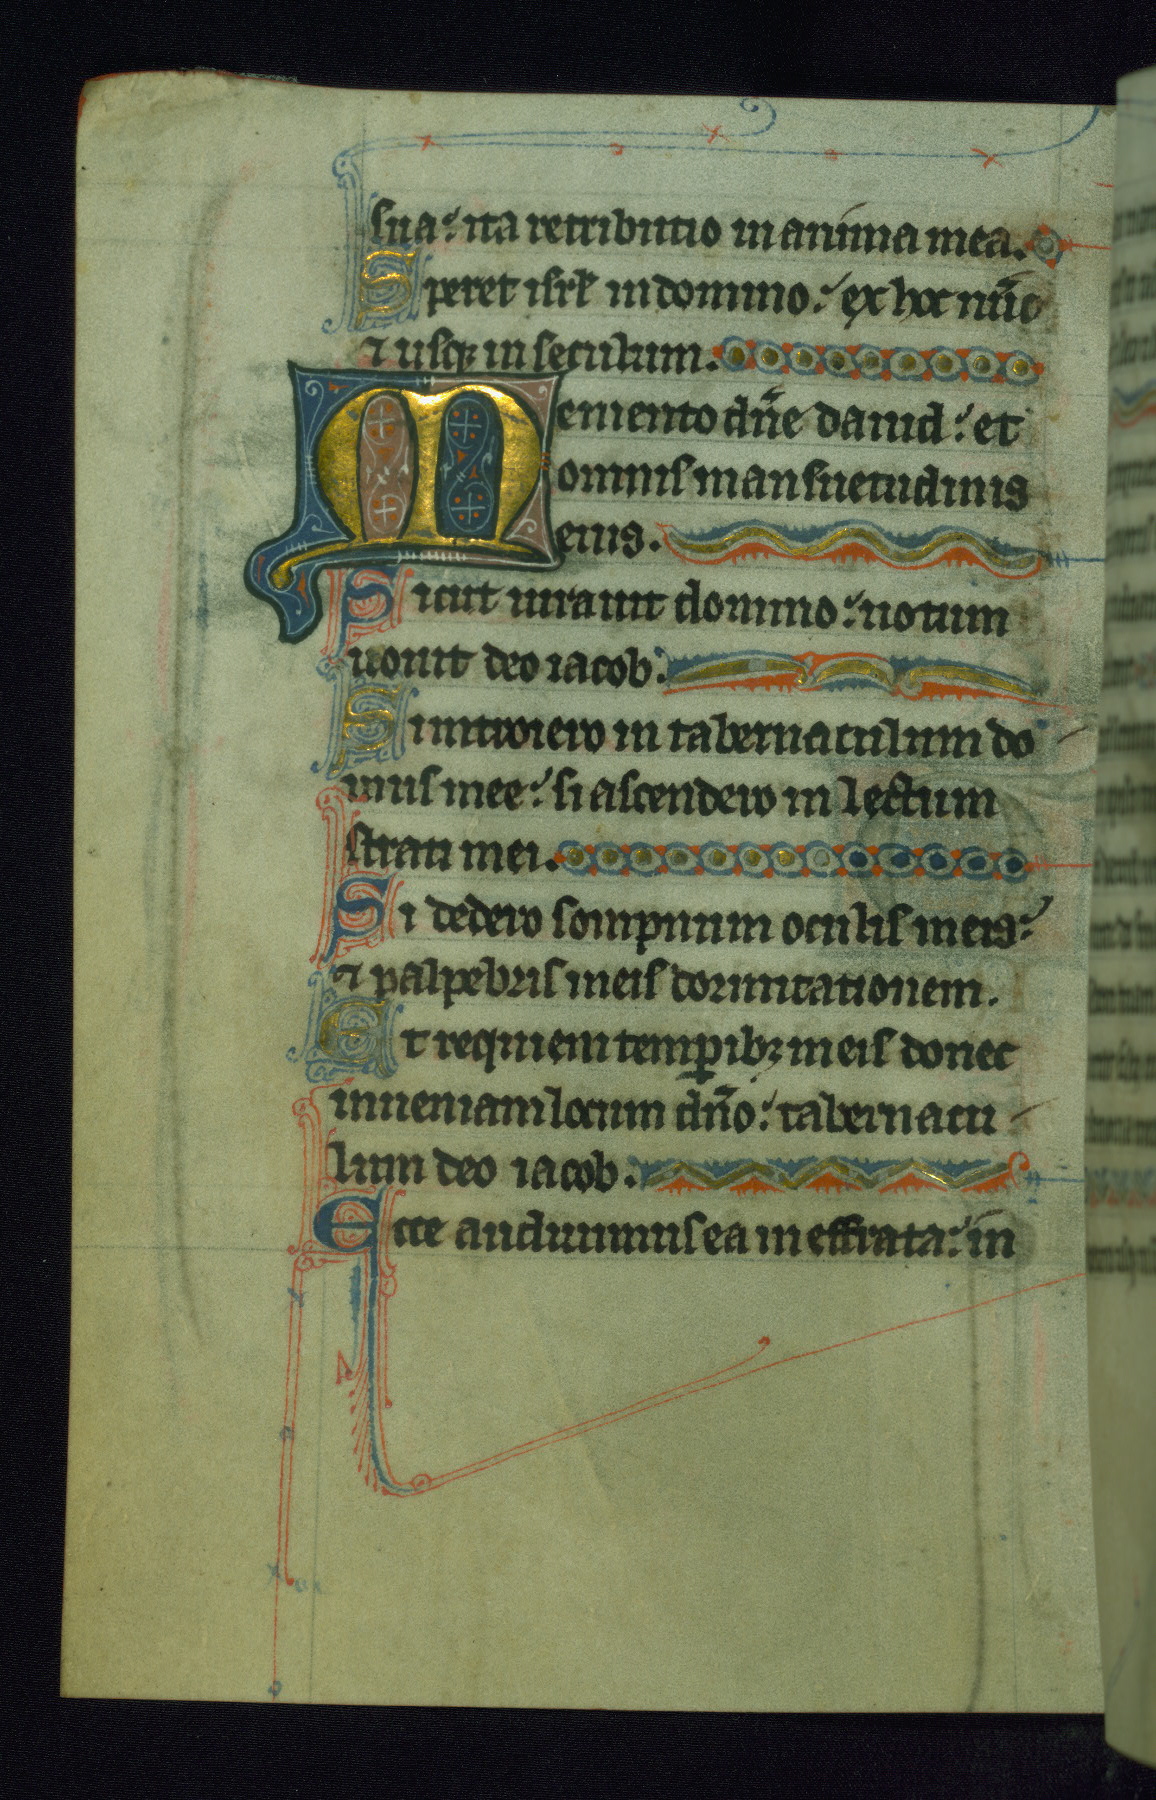 sua: ita retributio in anima mea.
Speret isrl' in domino: ex hoc nu̅c
⁊ usq; in seculum.
Memento dn̅e dauid: et
omnis mansuetudinis
eius.
Sicut iurauit domino: uotum
uouit deo iacob.
Si introiero in tabernaculum do
mus mee: si ascendero in lectum
strati mei.
Si dedero sompnum oculis meis:
⁊ palpebris meis dormitationem.
Et requiem temp̲ibꝫ meis donec
inueniam locum dn̅o: tabernacu
lum deo iacob.
Ecce audiuimus ea in effrata: in